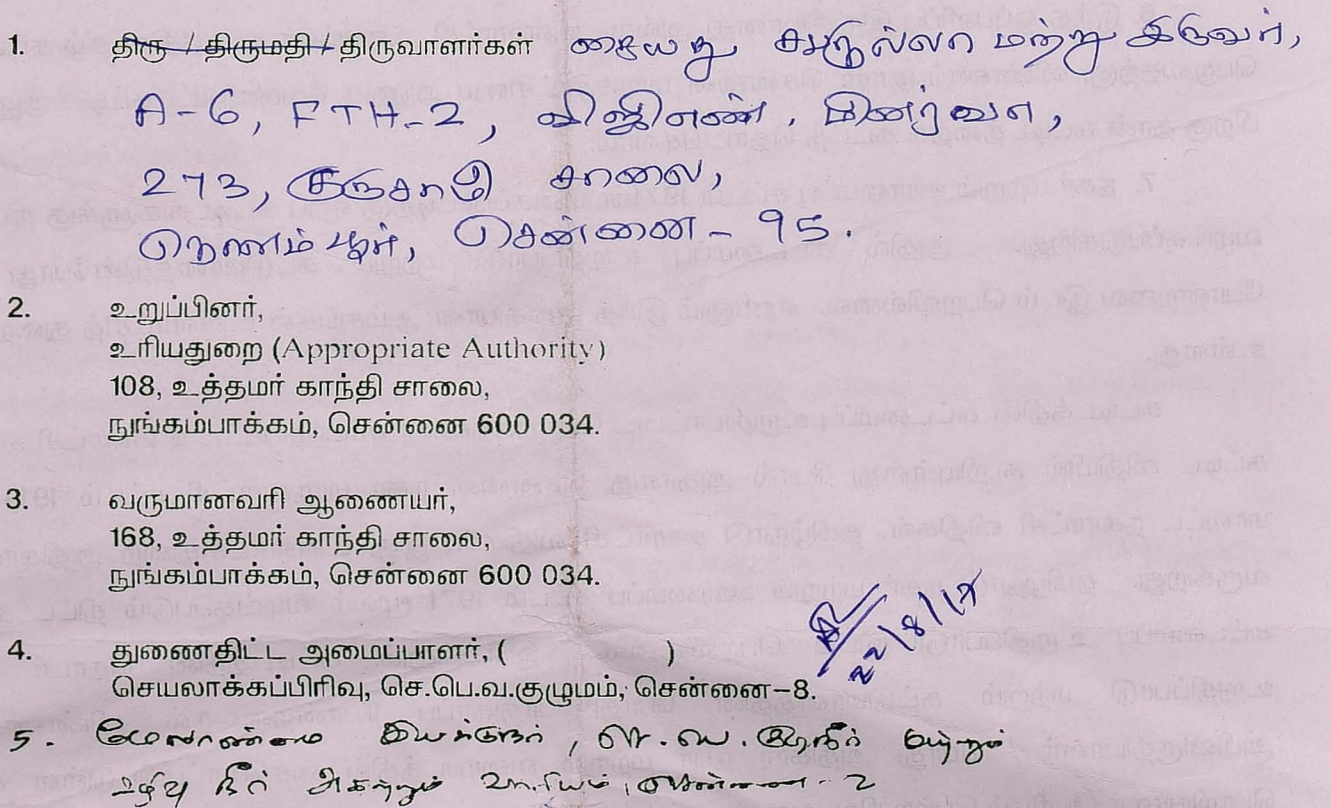 1. திரு / திருமதி / திருவாளர்கள் சையது, சஅதுல்லா மற்று இருவர்,
A-6, FTH-2, விஜிஎண், மினர்வா,
273, குஞ்சாடு சாலை,
நெளம்பூர், சென்னை - 95.
2. உறுப்பினர்,
உரியதுறை (Appropriate Authority)
108, உத்தமர் காந்தி சாலை,
நுங்கம்பாக்கம், சென்னை 600 034.
3. வருமானவரி ஆணையர்,
168, உத்தமர் காந்தி சாலை,
நுங்கம்பாக்கம், சென்னை 600 034.
22/8/17
4. துணைதிட்ட அமைப்பாளர், ( )
செயலாக்கப்பிரிவு, செ.பெ.வ.குழுமம், சென்னை-8.
5. மேலாண்மை இயக்குநர், செ. பெ. குடிநீர் மற்றும்
கழிவு நீர் அகற்றும் வாரியம், சென்னை - 2